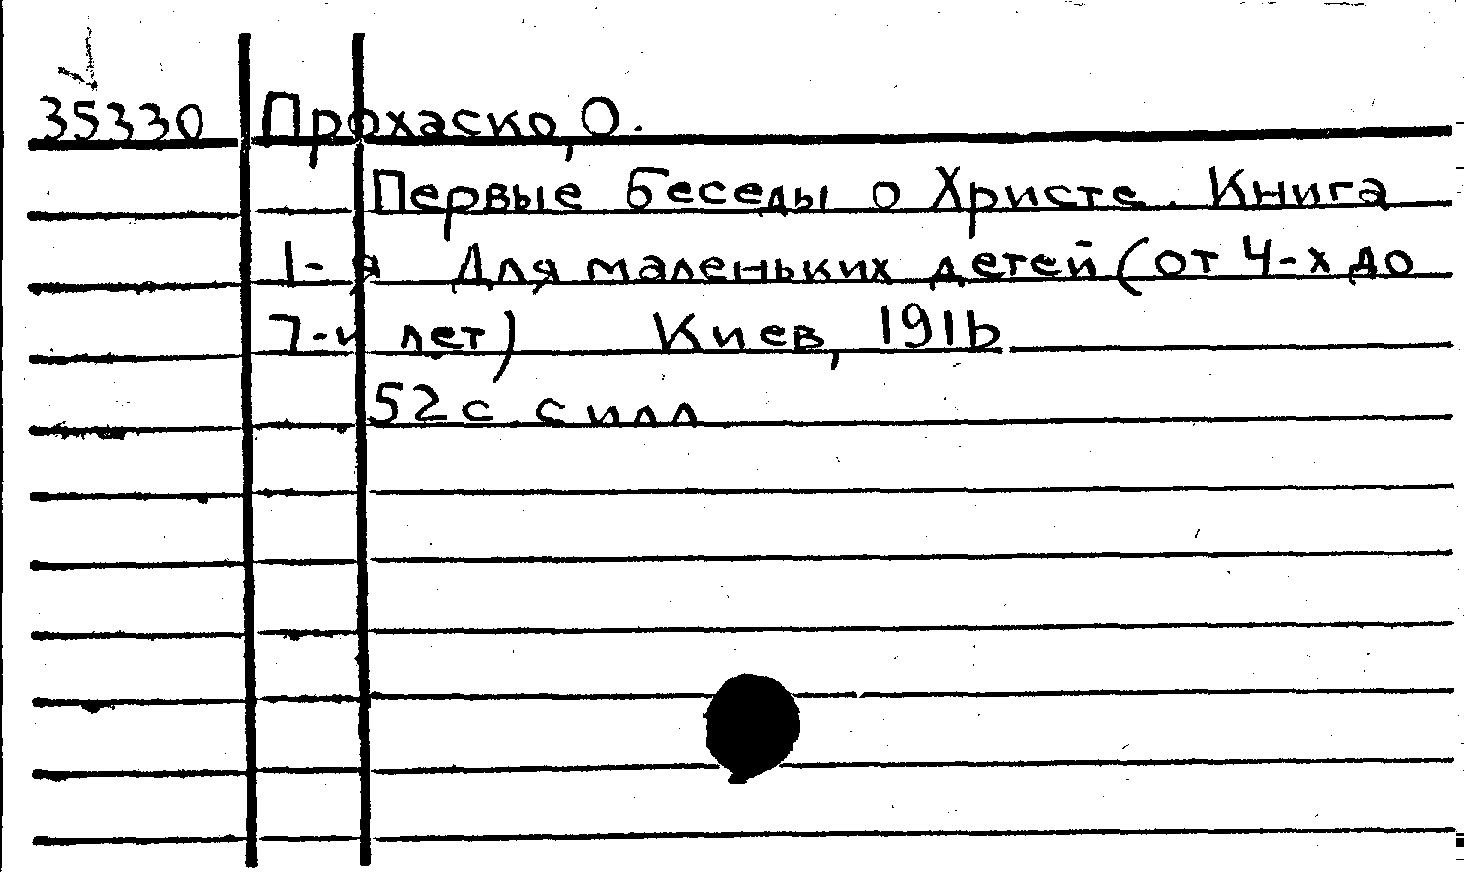 35330 Прохаско, О.
Первые беседы о Христе. Книга
1-я Для маленьких детей (от 4-х до
7-и лет) Киев, 1916
52 с с илл